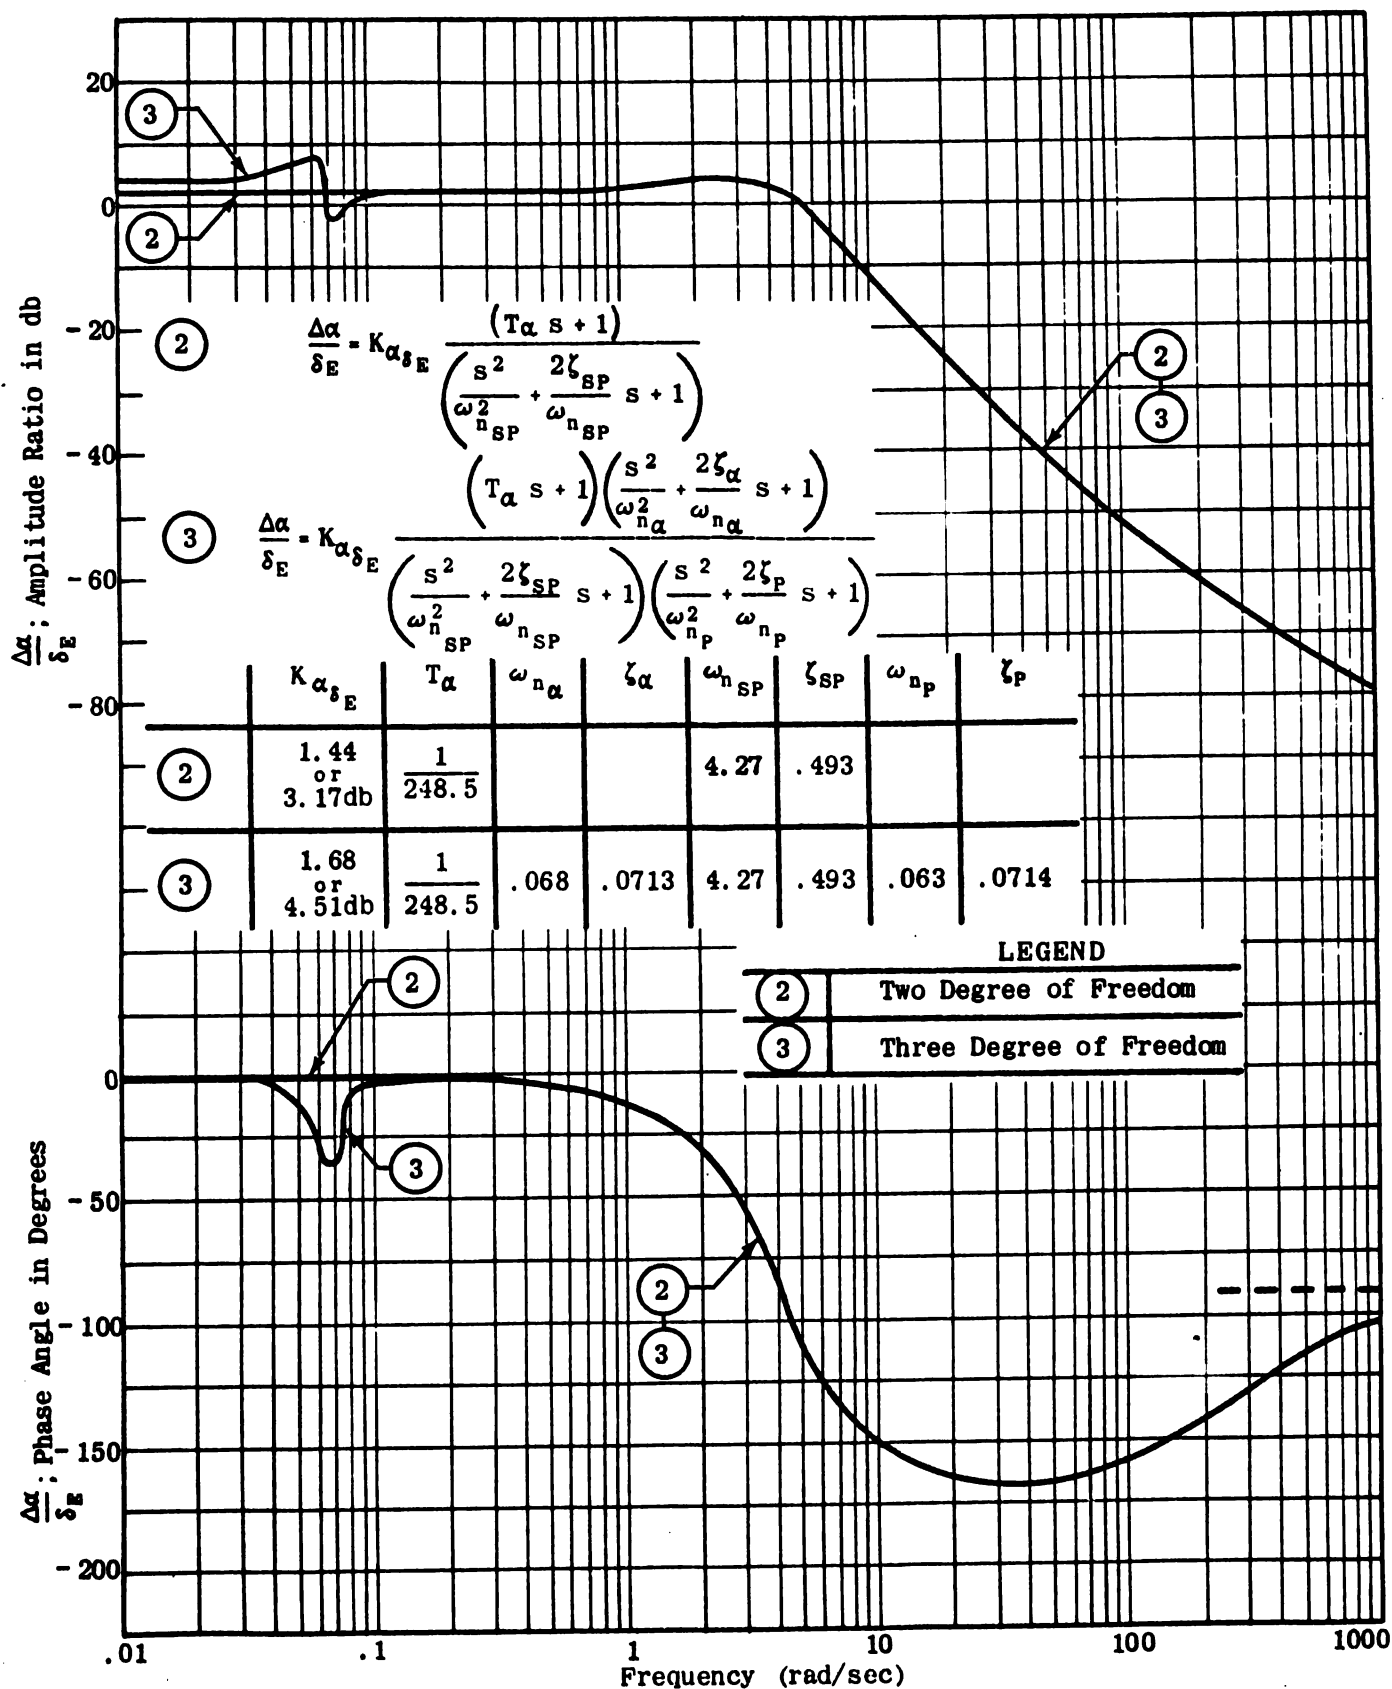 20
3
0
2
Δα/δ_E ; Amplitude Ratio in db
- 20
2 Δα/δ_E = K_αδ_E (T_α s + 1) / (s²/ω²_n_SP + 2ζ_SP/ω_n_SP s + 1)
2
3
- 40
3 Δα/δ_E = K_αδ_E (T_α s + 1)(s²/ω²_n_α + 2ζ_α/ω_n_α s + 1) / (s²/ω²_n_SP + 2ζ_SP/ω_n_SP s + 1)(s²/ω²_n_P + 2ζ_P/ω_n_P s + 1)
- 60
- 80
K_αδ_E T_α ω_n_α ζ_α ω_n_SP ζ_SP ω_n_P ζ_P
2 1.44 or 3.17db 1/248.5 4.27 .493
3 1.68 or 4.51db 1/248.5 .068 .0713 4.27 .493 .063 .0714
LEGEND
2 Two Degree of Freedom
3 Three Degree of Freedom
2
0
3
Δα/δ_E ; Phase Angle in Degrees
- 50
2
3
- 100
- 150
- 200
.01 .1 1 10 100 1000
Frequency (rad/sec)